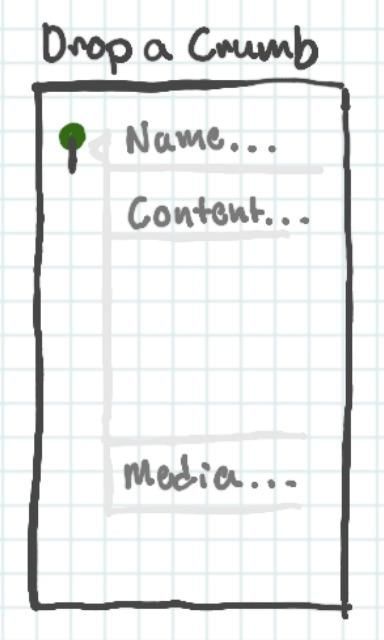 Drop a Crumb
Name...
Content...
Media...